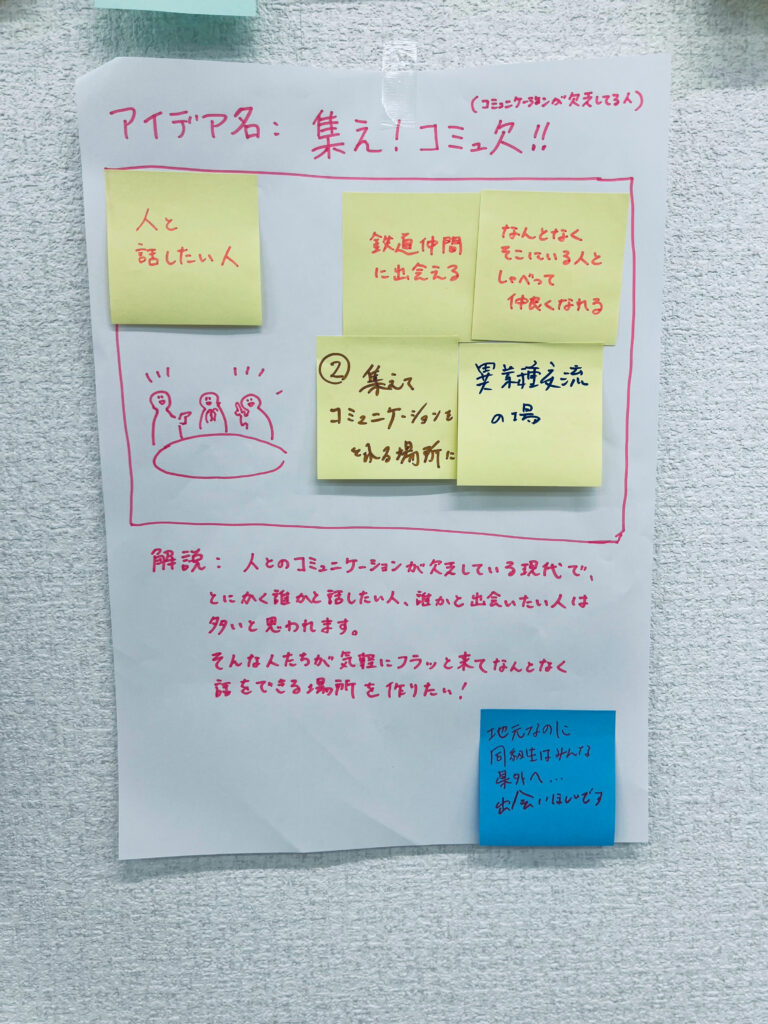 (コミュニケーションが欠乏してる人)
アイデア名: 集え!コミュ欠!!
人と
話したい人
鉄道仲間
に出会える
なんとなく
そこにいる人と
しゃべって
仲良くなれる
② 集えて
コミュニケーションを
とれる場所に
異業種交流
の場
解説: 人とのコミュニケーションが欠乏している現代で、
とにかく誰かと話したい人、誰かと出会いたい人は
多いと思われます。
そんな人たちが気軽にフラッと来てなんとなく
話をできる場所を作りたい!
地元なのに
同級生はみんな
県外へ...
出会いほしいです